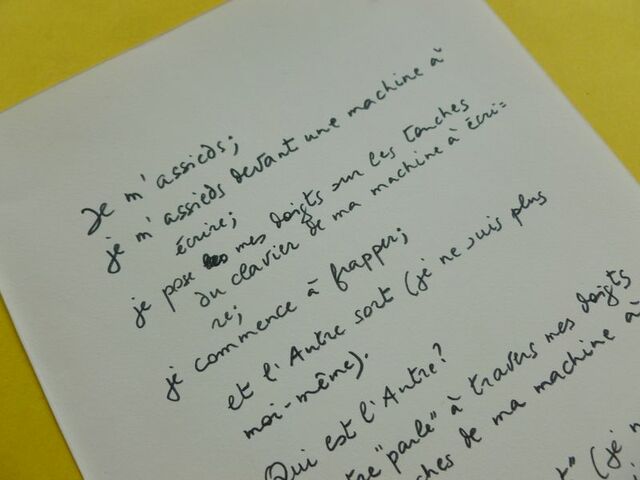 Je m'assieds;
je m'assieds devant une machine à
écrire;
je pose mes doigts sur les touches
du clavier de ma machine à écri=
re;
je commence à frapper;
et l'Autre sort (je ne suis plus
moi-même).
Qui est l'Autre?
"parle" à travers mes doigts
de ma machine à
(je